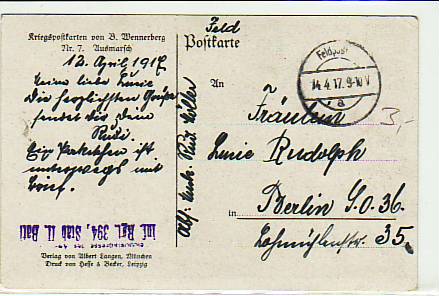 Kriegspostkarten von B. Wennerberg
Nr. 7. Ausmarsch
12. April 1917
Meine liebe Lucie
Die herzlichsten Grüße
sendet dir dein
Rudi.
Ein Paketchen ist
unterwegs mit
Brief.
Inf. Rgt. 394, Stab II. Batl
Verlag von Albert Langen, München
Druck von Hesse & Becker, Leipzig
Abs.
Feld
Postkarte
Feldpost
14.4.17. 9-10 V
a
An
Fräulein
3,-
Lucie Rudolph
in
Berlin S.O. 36.
35.